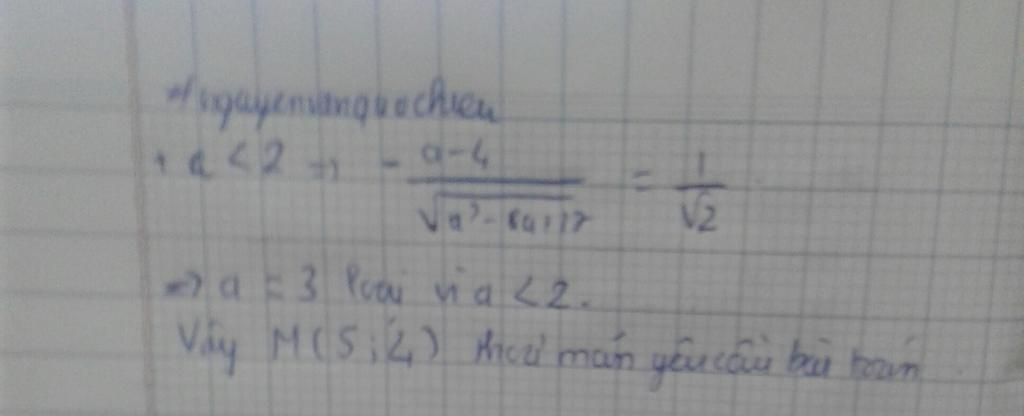 #nguyenvanquochieu
+ a < 2 → - (a-4)/√(a²-8a+17) = 1/√2
=> a = 3 loại vì a < 2.
Vậy M(5;4) thoả mãn yêu cầu bài toán